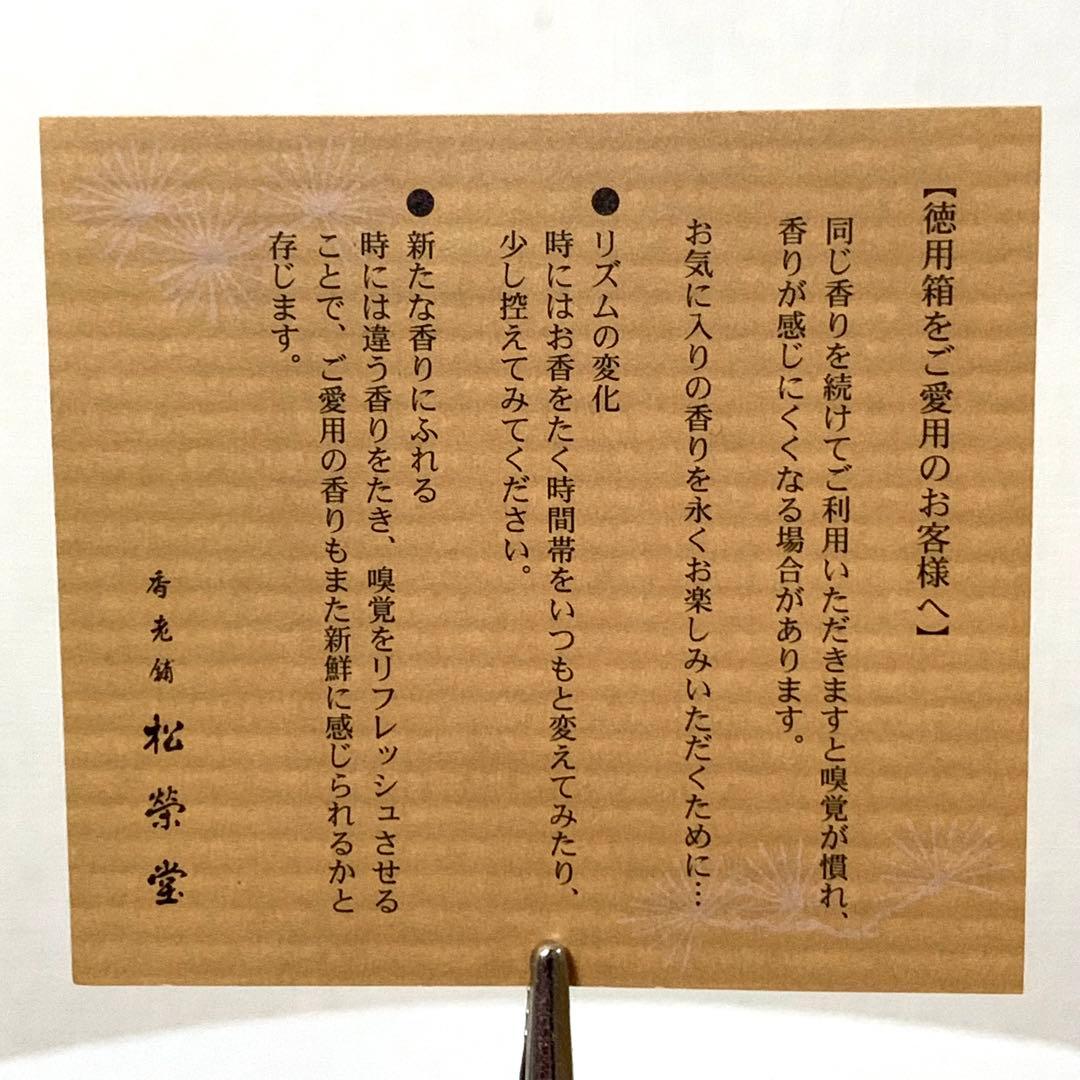 【徳用箱をご愛用のお客様へ】
同じ香りを続けてご利用いただきますと嗅覚が慣れ、
香りが感じにくくなる場合があります。
お気に入りの香りを永くお楽しみいただくために…
●リズムの変化
時にはお香をたく時間帯をいつもと変えてみたり、
少し控えてみてください。
●新たな香りにふれる
時には違う香りをたき、嗅覚をリフレッシュさせる
ことで、ご愛用の香りもまた新鮮に感じられるかと
存じます。
香老舗 松榮堂